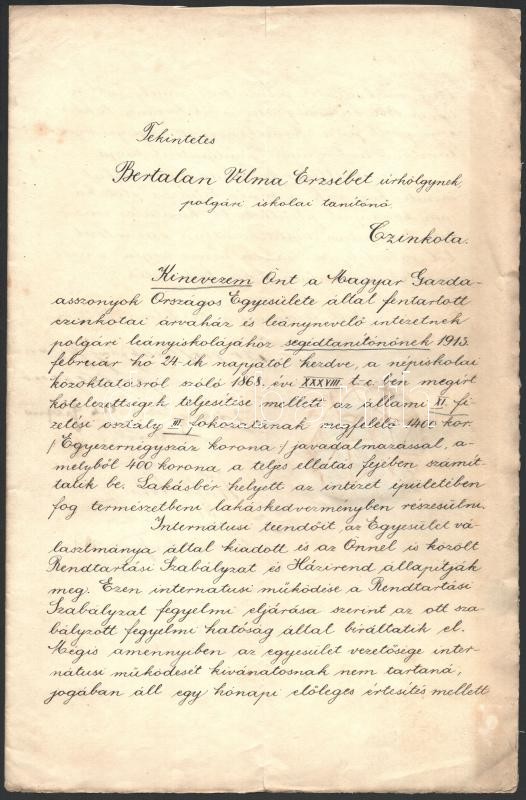 Tekintetes
Bertalan Vilma Erzsébet úrhölgynek
polgári iskolai tanitónő
Czinkota.
Kinevezem Önt a Magyar Gazda-
asszonyok Országos Egyesülete által fentartott
czinkotai árvaház és leánynevelő intézetnek
polgári leányiskolájához segédtanítónőnek 1913.
február hó 24-ik napjától kezdve, a népiskolai
közoktatásról szóló 1868. évi XXXVIII. t-c.-ben megirt
kötelezettségek teljesitése mellett az állami XI. fi-
zetési osztály III. fokozatának megfelelő 1400 kor.
/Egyezernégyszáz korona/ javadalmazással, a-
melyből 400 korona a teljes ellátás fejében számit-
tatik be. Lakásbér helyett az intézet épületében
fog természetbeni lakáskedvezményben részesülni.
Internátusi teendőit az Egyesület vá-
lasztmánya által kiadott és az Önnel is közölt
Rendtartási Szabályzat és Házirend állapitják
meg. Ezen internatusi működése a Rendtartási
Szabályzat fegyelmi eljárása szerint az ott sza-
bályzott fegyelmi hatóság által biráltatik el.
Mégis amennyiben az egyesület vezetősége inter-
nátusi működését kivánatosnak nem tartaná,
jogában áll egy hónapi előleges értesités mellett